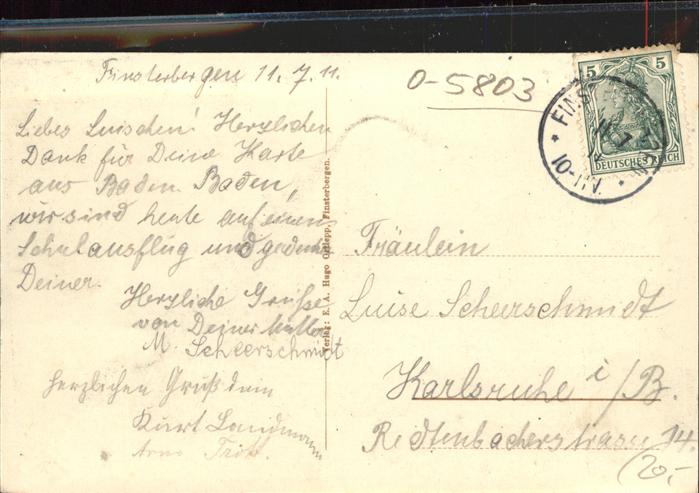 Finsterbergen 11. 7. 11.
O-5803
Liebes Luischen! Herzlichen
Dank für Deine Karte
aus Baden-Baden,
wir sind heute auf einem
Schulausflug und gedenken
Deiner.
Herzliche Grüße
von Deiner Mutter
M. Scheerschmidt
Herzlichen Gruß dein
Kurt Landmann
Arno
Verlag: E. A. Hugo Finsterbergen.
5 5
DEUTSCHES REICH
FINS
10-11V.
Fräulein
Luise Scheerschmidt
Karlsruhe i/B.
Redtenbacherstrasse 14.
20,-